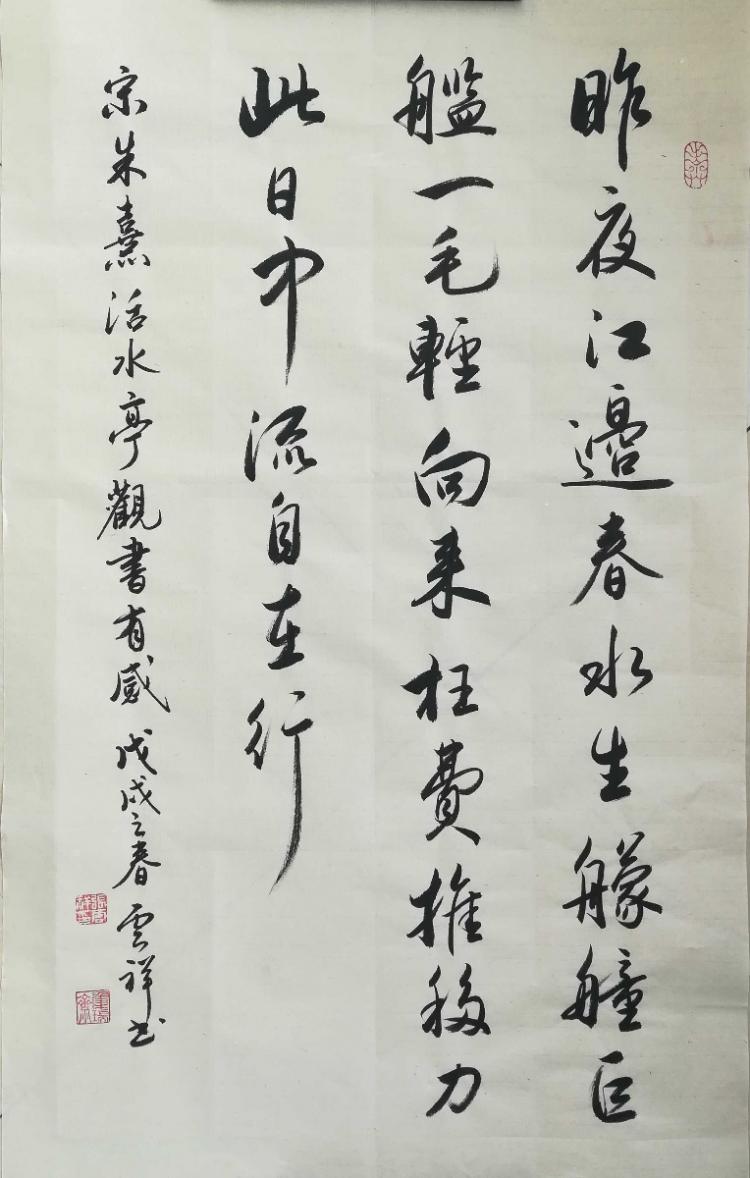 昨夜江邊春水生艨艟巨
艦一毛輕向来枉費推移力
此日中流自在行
宗朱熹活水亭觀書有感 戊戌之春 雲祥书